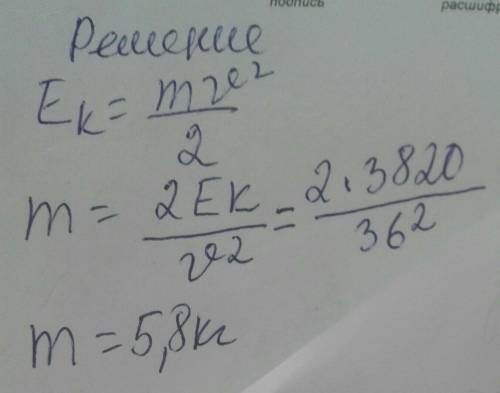 подпись
расшифр
Решение
Eк = mv²/2
m = 2Eк/v² = 2·3820/36²
m = 5,8 кг